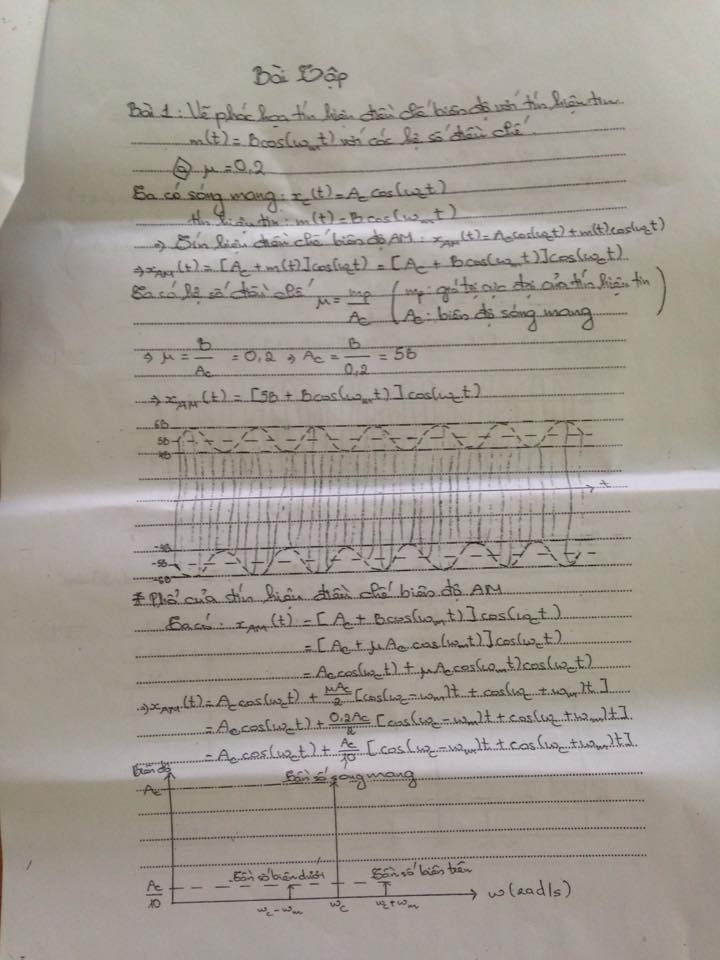 Bài Tập
Bài 1: Vẽ phác họa tín hiệu điều chế biên độ với tín hiệu tin
m(t) = Bcos(ωmt) với các hệ số điều chế.
a μ = 0,2
Ta có sóng mang: xc(t) = Ac cos(ωct)
tín hiệu tin: m(t) = Bcos(ωmt)
⇒ Tín hiệu điều chế biên độ AM: xAM(t) = Accos(ωct) + m(t)cos(ωct)
⇒ xAM(t) = [Ac + m(t)]cos(ωct) = [Ac + Bcos(ωmt)]cos(ωct).
Ta có hệ số điều chế μ = mp/Ac (mp: giá trị cực đại của tín hiệu tin
Ac: biên độ sóng mang)
⇒ μ = B/Ac = 0,2 ⇒ Ac = B/0,2 = 5B
⇒ xAM(t) = [5B + Bcos(ωmt)]cos(ωct)
6B
5B
4B
t
-4B
-5B
-6B
* Phổ của tín hiệu điều chế biên độ AM
Ta có: xAM(t) = [Ac + Bcos(ωmt)]cos(ωct)
= [Ac + μAc cos(ωmt)]cos(ωct)
= Accos(ωct) + μAccos(ωmt)cos(ωct)
⇒ xAM(t) = Accos(ωct) + μAc/2 [cos(ωc - ωm)t + cos(ωc + ωm)t]
= Accos(ωct) + 0,2Ac/2 [cos(ωc - ωm)t + cos(ωc + ωm)t].
= Accos(ωct) + Ac/10 [cos(ωc - ωm)t + cos(ωc + ωm)t].
Biên độ
Tần số sóng mang
Ac
Tần số biên dưới
Tần số biên trên
Ac/10
ωc - ωm
ωc
ωc + ωm
ω(rad/s)